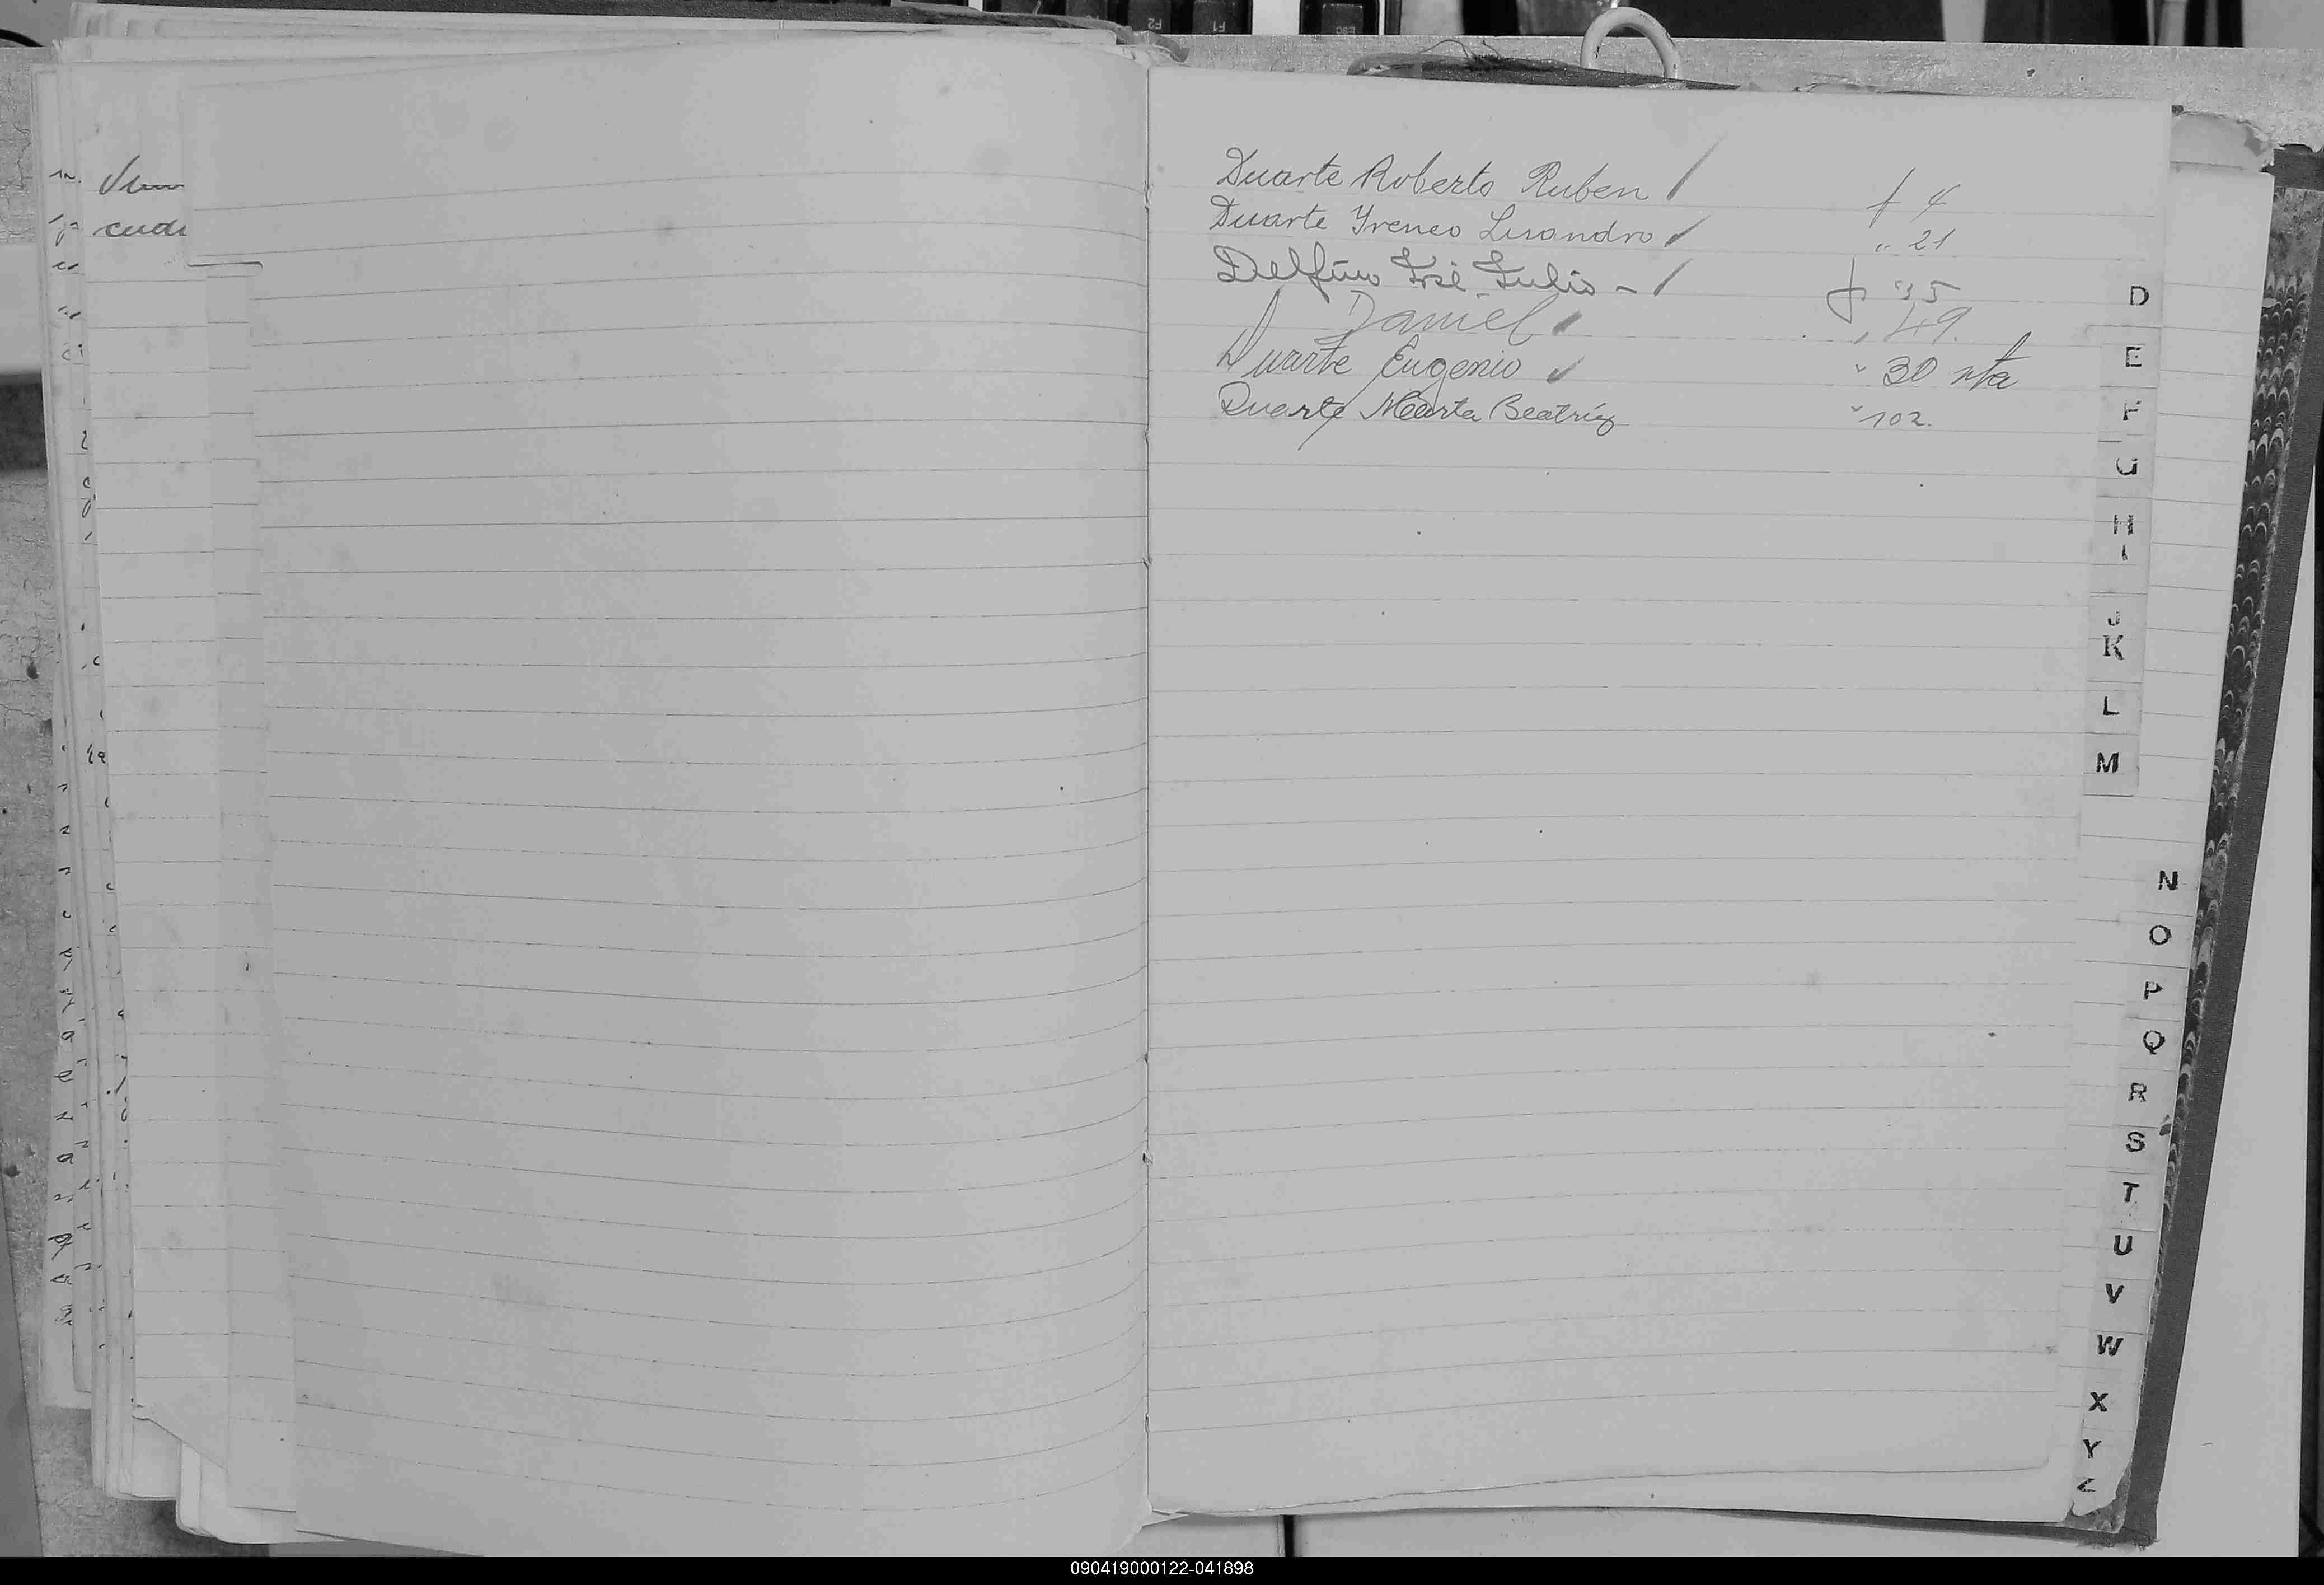 Duarte Roberto Ruben / f 4
Duarte Yreneo Lisandro " 21
Delfino José Julio - / f 35
Daniel " 49.
Duarte Eugenio " 30 vta
Duarte Marta Beatríz " 102.
D
E
F
G
H
I
J
K
L
M
N
O
P
Q
R
S
T
U
V
W
X
Y
Z
090419000122-041898